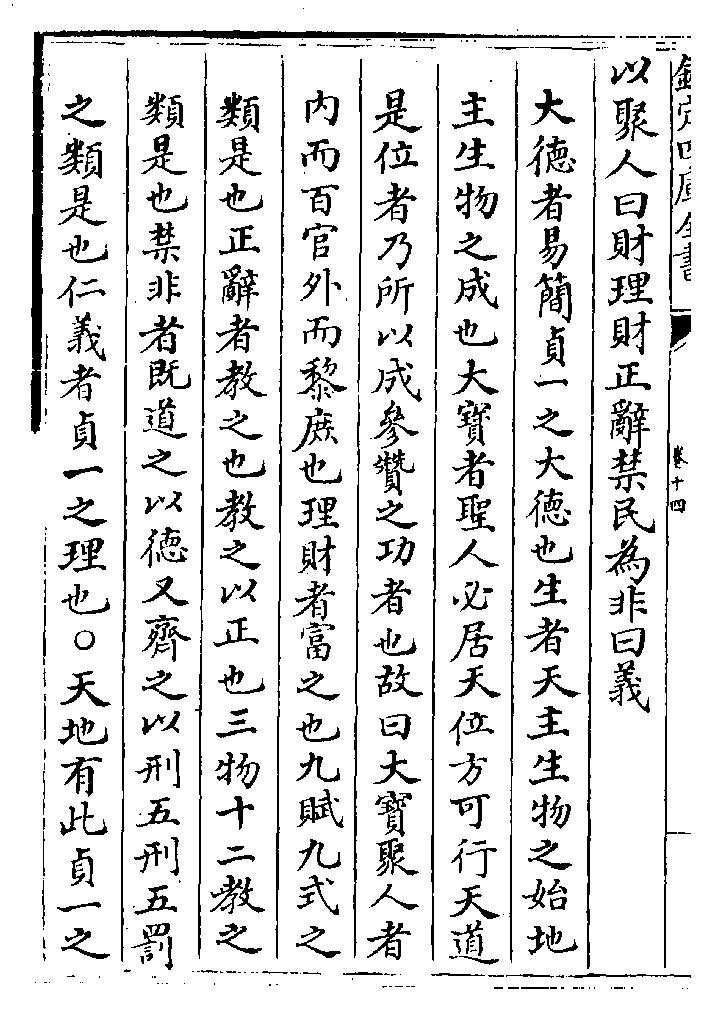 欽定四庫全書
卷十四
以聚人曰財理財正辭禁民為非曰義
大德者易簡貞一之大德也生者天主生物之始地
主生物之成也大寶者聖人必居天位方可行天道
是位者乃所以成參贊之功者也故曰大寶聚人者
内而百官外而黎庶也理財者富之也九賦九式之
類是也正辭者教之也教之以正也三物十二教之
類是也禁非者既道之以德又齊之以刑五刑五罰
之類是也仁義者貞一之理也○天地有此貞一之